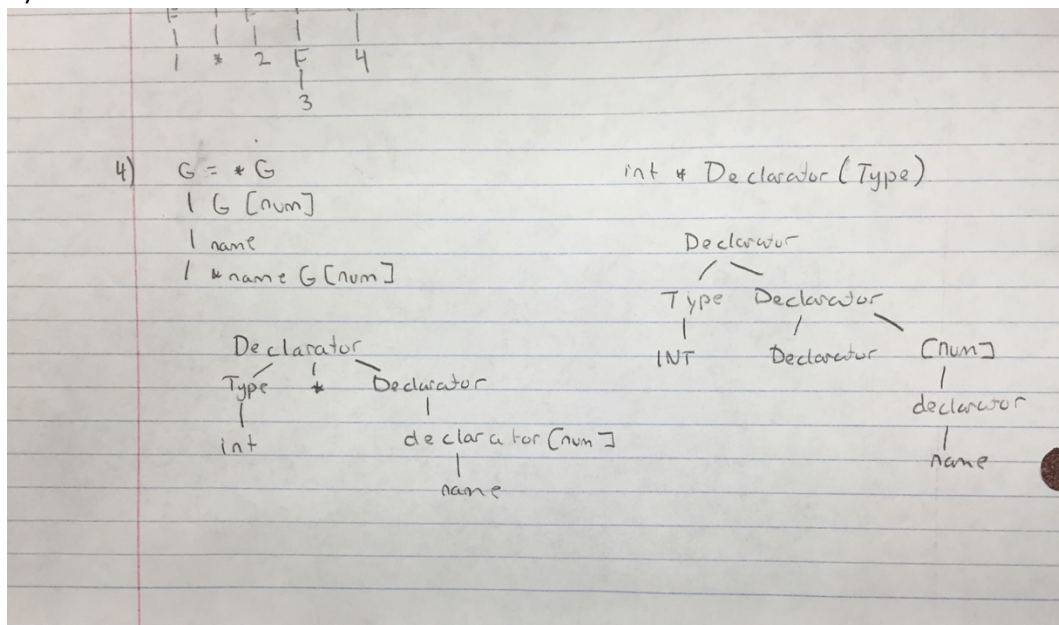 1 * 2 F 4
3
4) G = * G
| G [num]
| name
| * name G [num]
int * Declarator (Type)
Declarator
Type * Declarator
int declarator [num]
name
Declarator
Type Declarator
INT Declarator [num]
declarator
name